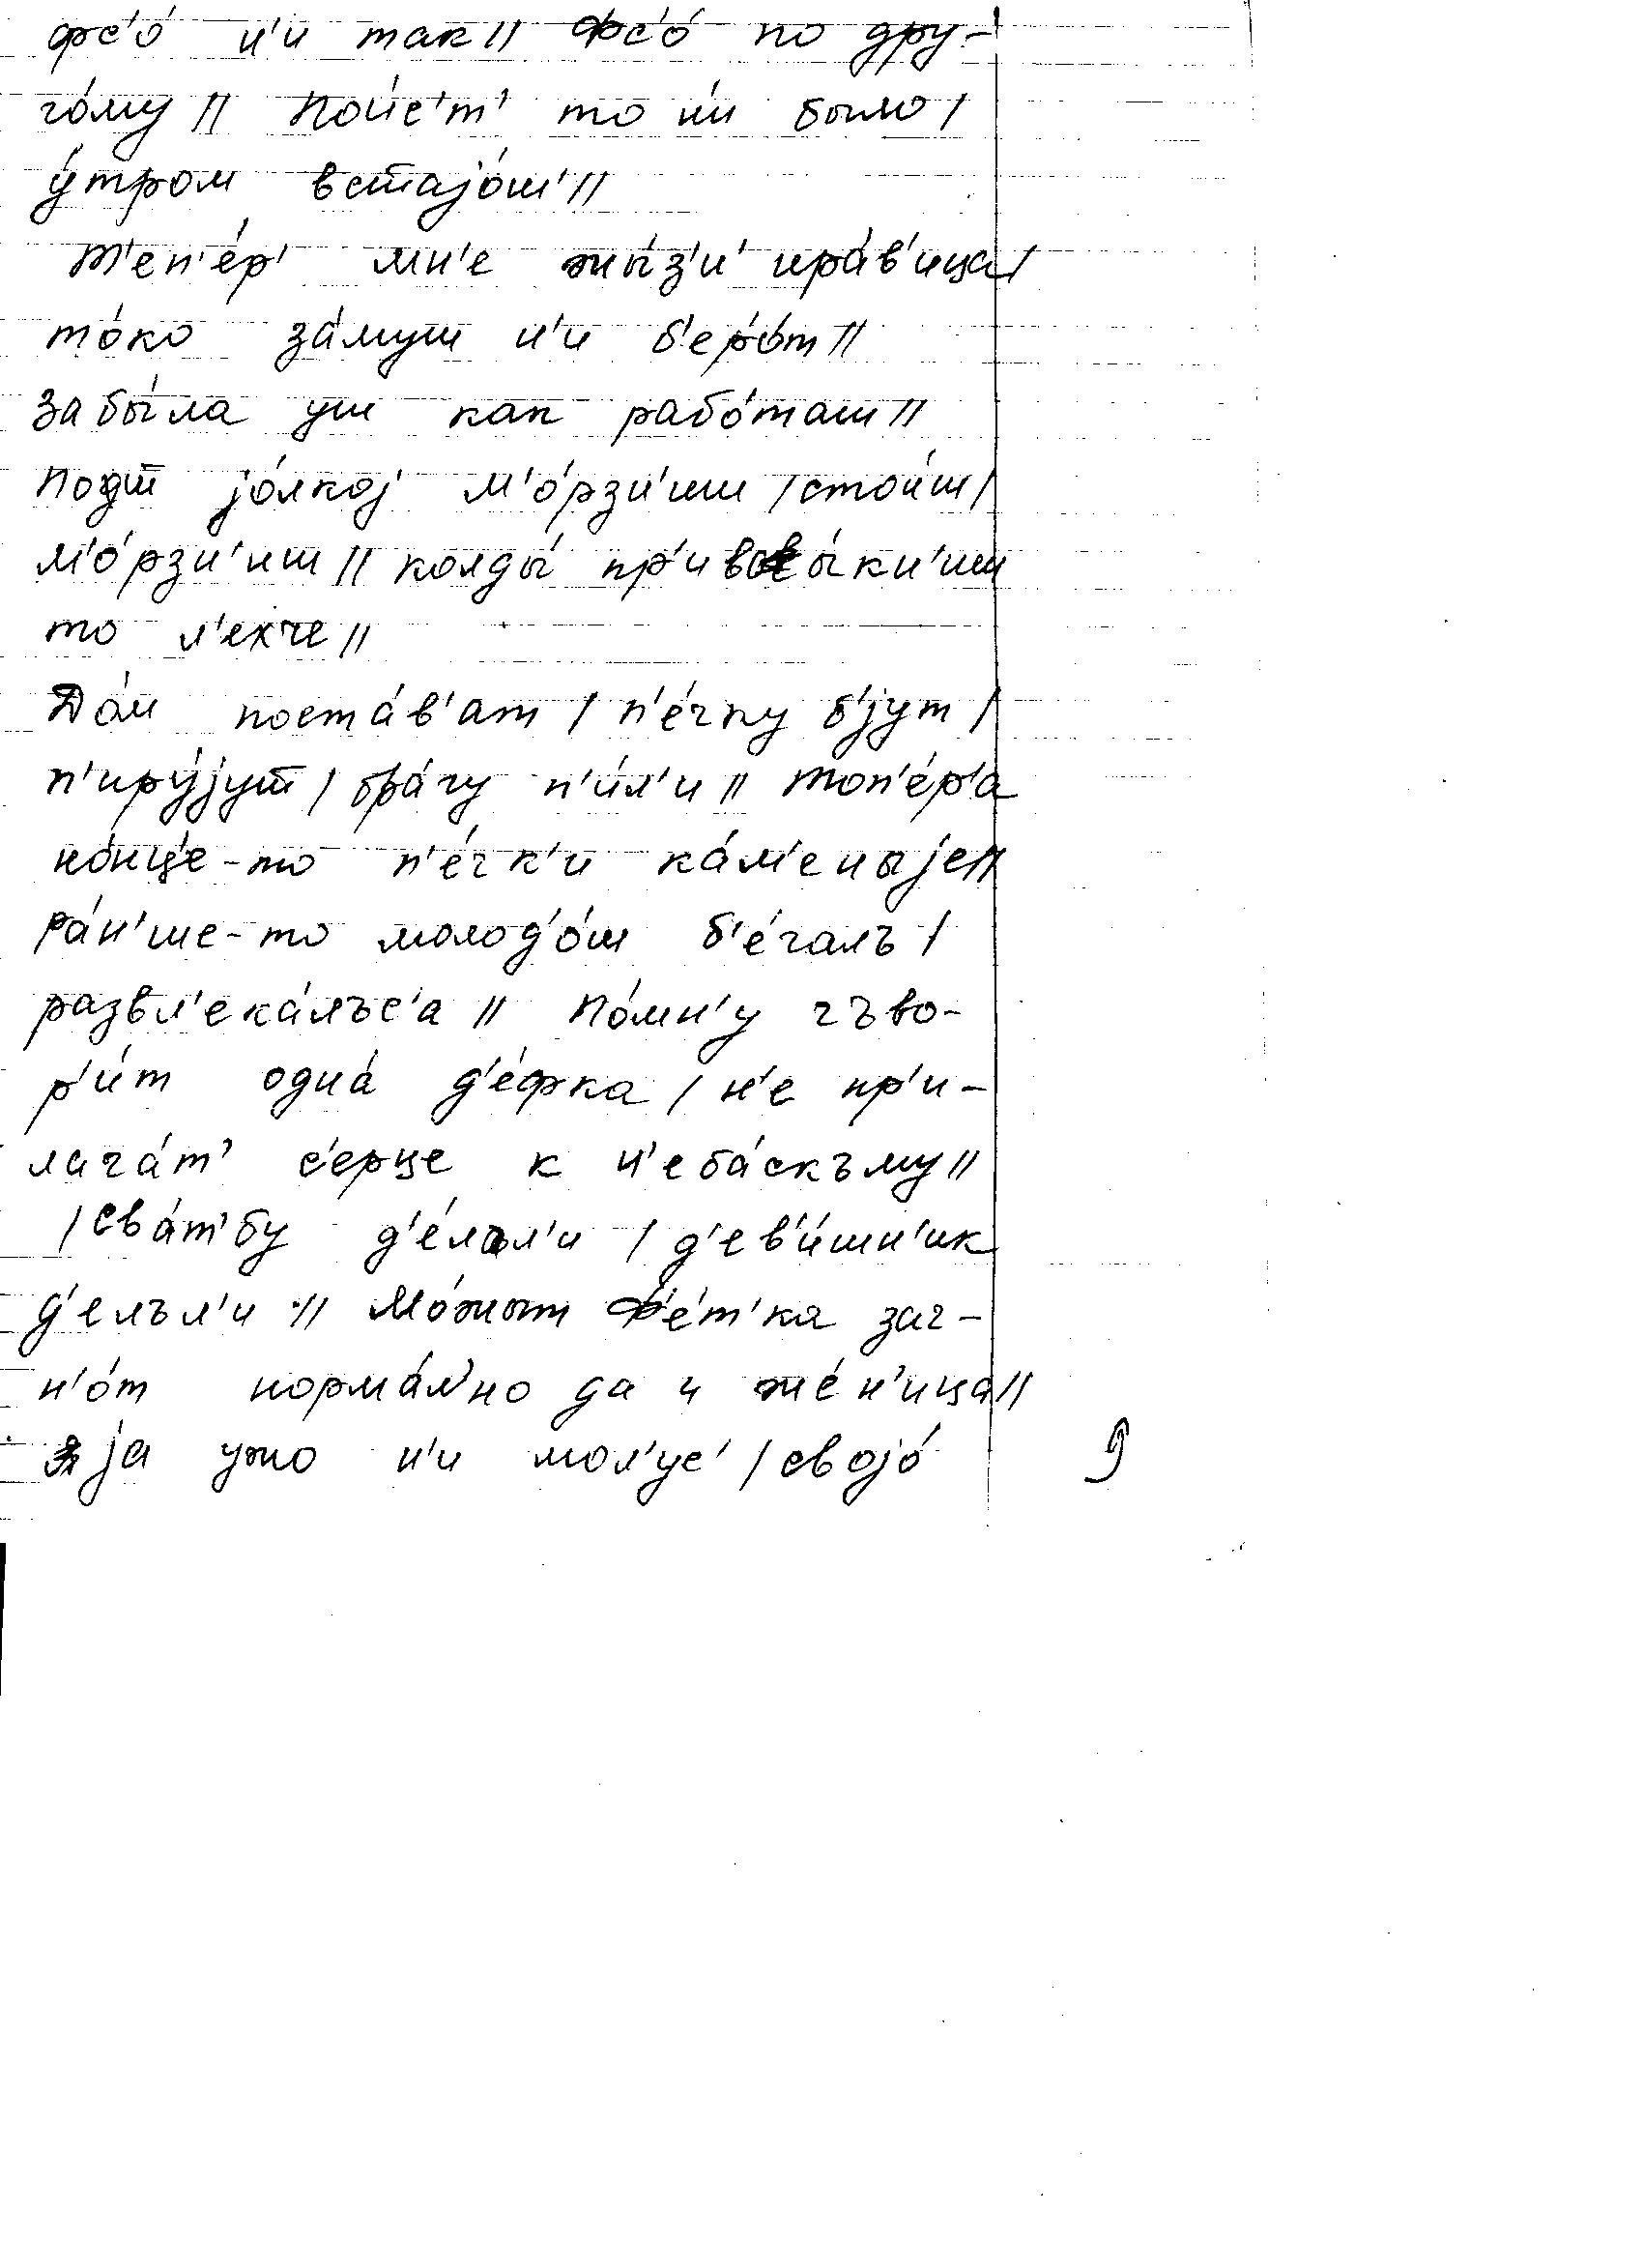 фс'о́ н'и так // Фс'о́ по дру-
го́му // Пойе'т' то н'и было /
у́тром встајо́ш' //
Т'еп'е́р' мн'е жы́з'н' нра́в'ица /
то́ко за́муш н'и б'ер'о́т //
забы́ла уш как рабо́таш //
Подт јо́лкој м'о́рзн'иш / стои́ш /
м'о́рзн'иш // колды́ пр'ивы́кн'иш
то л'ехче //
До́м поста́в'ат / п'е́чку б'јут /
п'иру́јут / бра́гу п'и́л'и // топ'е́р'а
но́нце-то п'е́чк'и ка́м'еныје //
Ра́н'ше-то молод'о́ш б'е́галъ /
развл'ека́лъс'а // По́мн'у гъво-
р'и́т одна́ д'е́фка / н'е пр'и-
лага́т' с'е́рце к н'еба́скъму //
/ Сва́т'бу д'е́лъл'и / д'ев'и́шн'ик
д'елъл'и // Мо́жыт Ф'е́т'ка заг-
н'о́т норма́л'но да и же́н'ица //
ја ужо н'и мол'ус' / својо́